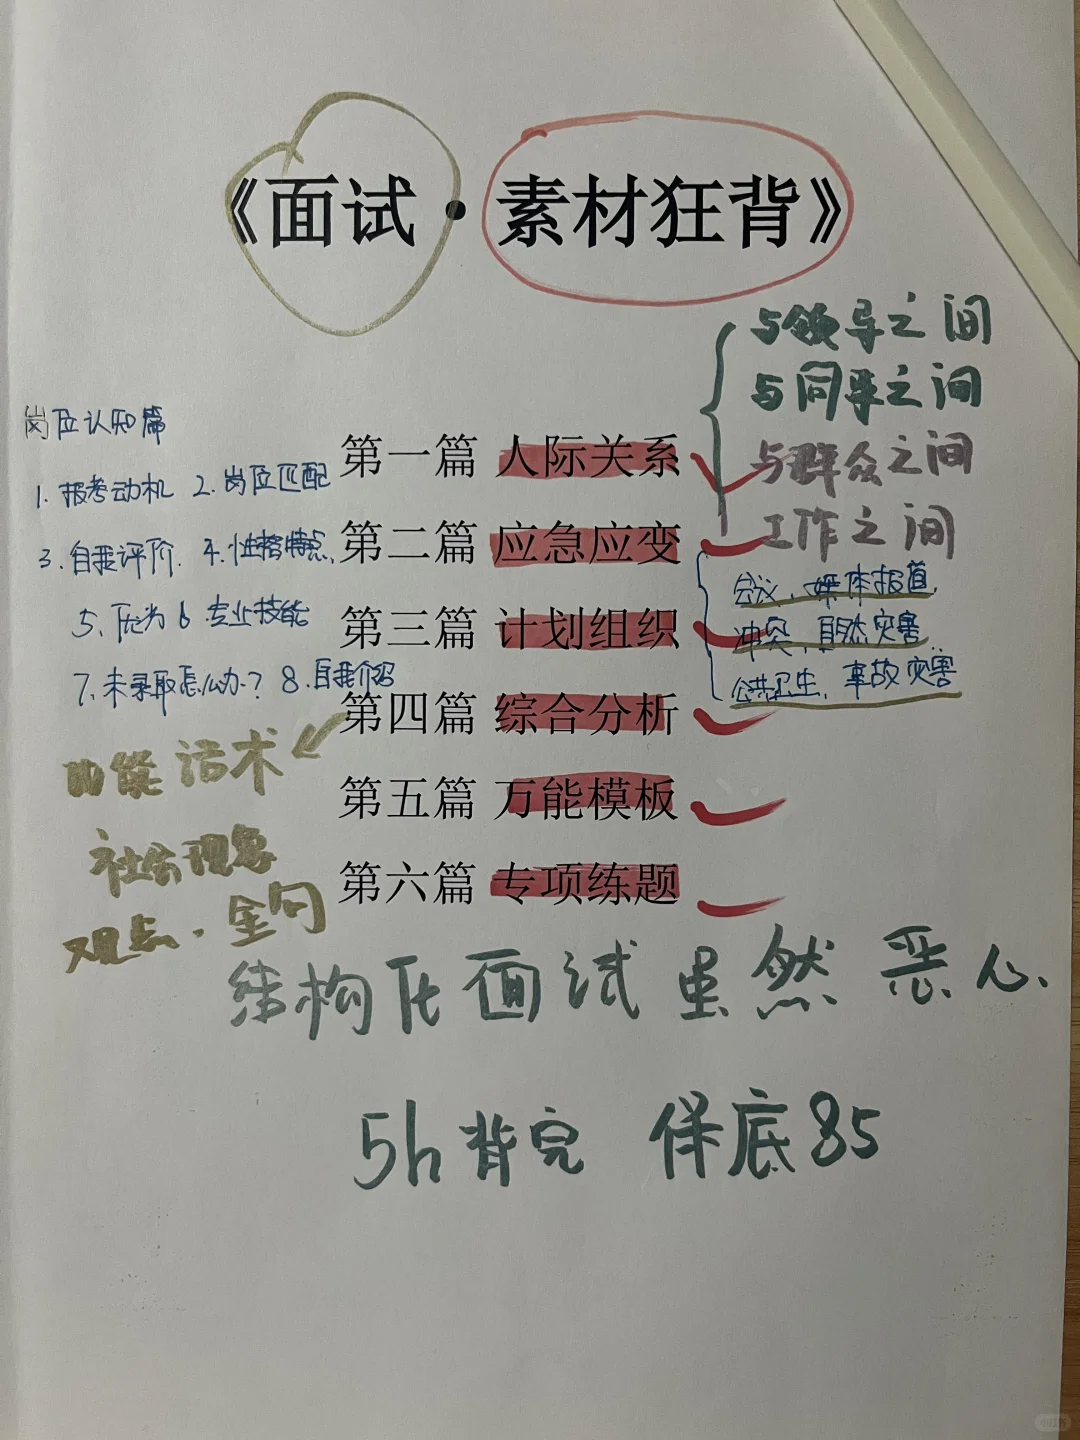 《面试·素材狂背》
与领导之间
与同事之间
与群众之间
工作之间
岗位认知篇
1. 报考动机 2. 岗位匹配
3. 自我评价. 4. 性格特点.
5. 作为 6. 专业技能
7. 未录取怎么办? 8. 自我介绍
第一篇 人际关系
第二篇 应急应变
第三篇 计划组织
第四篇 综合分析
第五篇 万能模板
第六篇 专项练题
会议、媒体报道,
冲突、自然灾害.
公共卫生、事故灾害
话术
社会现象
观点. 金句
结构化面试虽然恶心.
5h背完 保底85
小红书